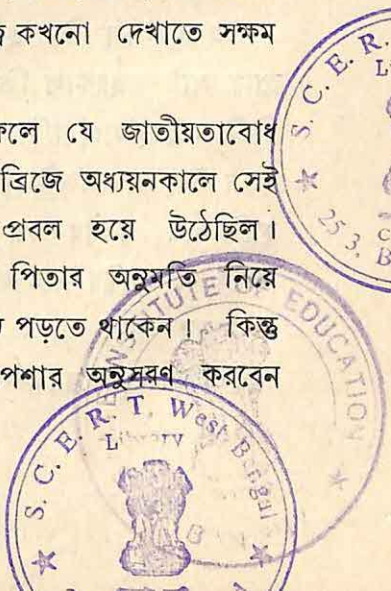 কখনো দেখাতে সক্ষম
ফলে যে জাতীয়তাবোধ
ব্রিজে অধ্যয়নকালে সেই
প্রবল হয়ে উঠেছিল।
পিতার অনুমতি নিয়ে
পড়তে থাকেন। কিন্তু
পশার অনুসরণ করবেন
S. C. E. R.
L
25 3.
B
INSTITUTE OF EDUCATION
S. C. E. R. T. West Bengal
Library